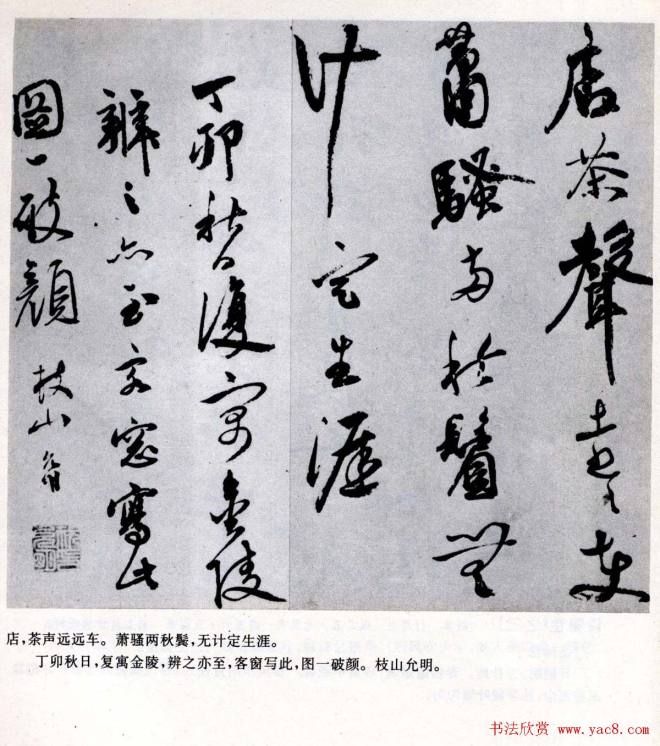 店茶聲遠々車
蕭騷両秋鬢無
计定生涯
丁卯秋日復寓金陵
辨之亦至客窓寫此
圖一破顔 枝山允明
店，茶声远远车。萧骚两秋鬓，无计定生涯。
丁卯秋日，复寓金陵，辨之亦至，客窗写此，图一破颜。枝山允明。
书法欣赏 www.yac8.com